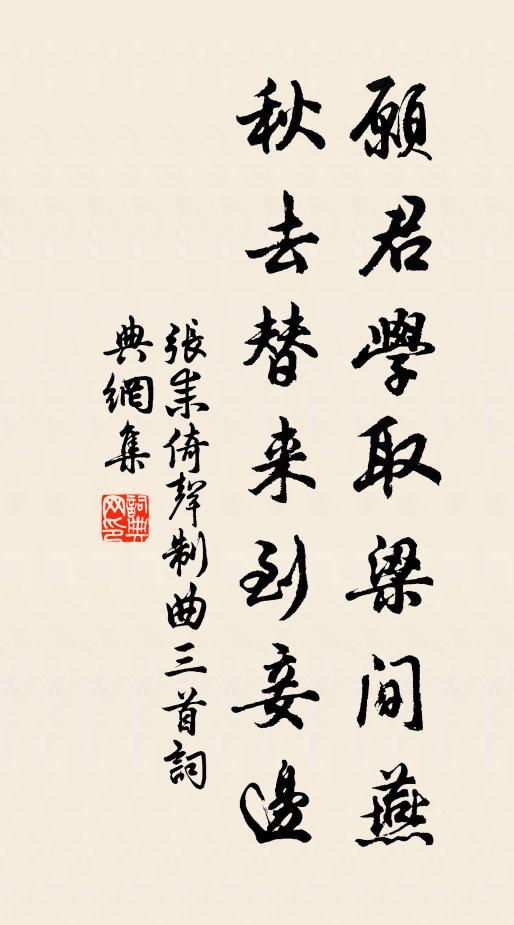 願君學取梁间燕
秋去替来到妾邊
張耒倚聲制曲三首詞
典網集
詞典
网印